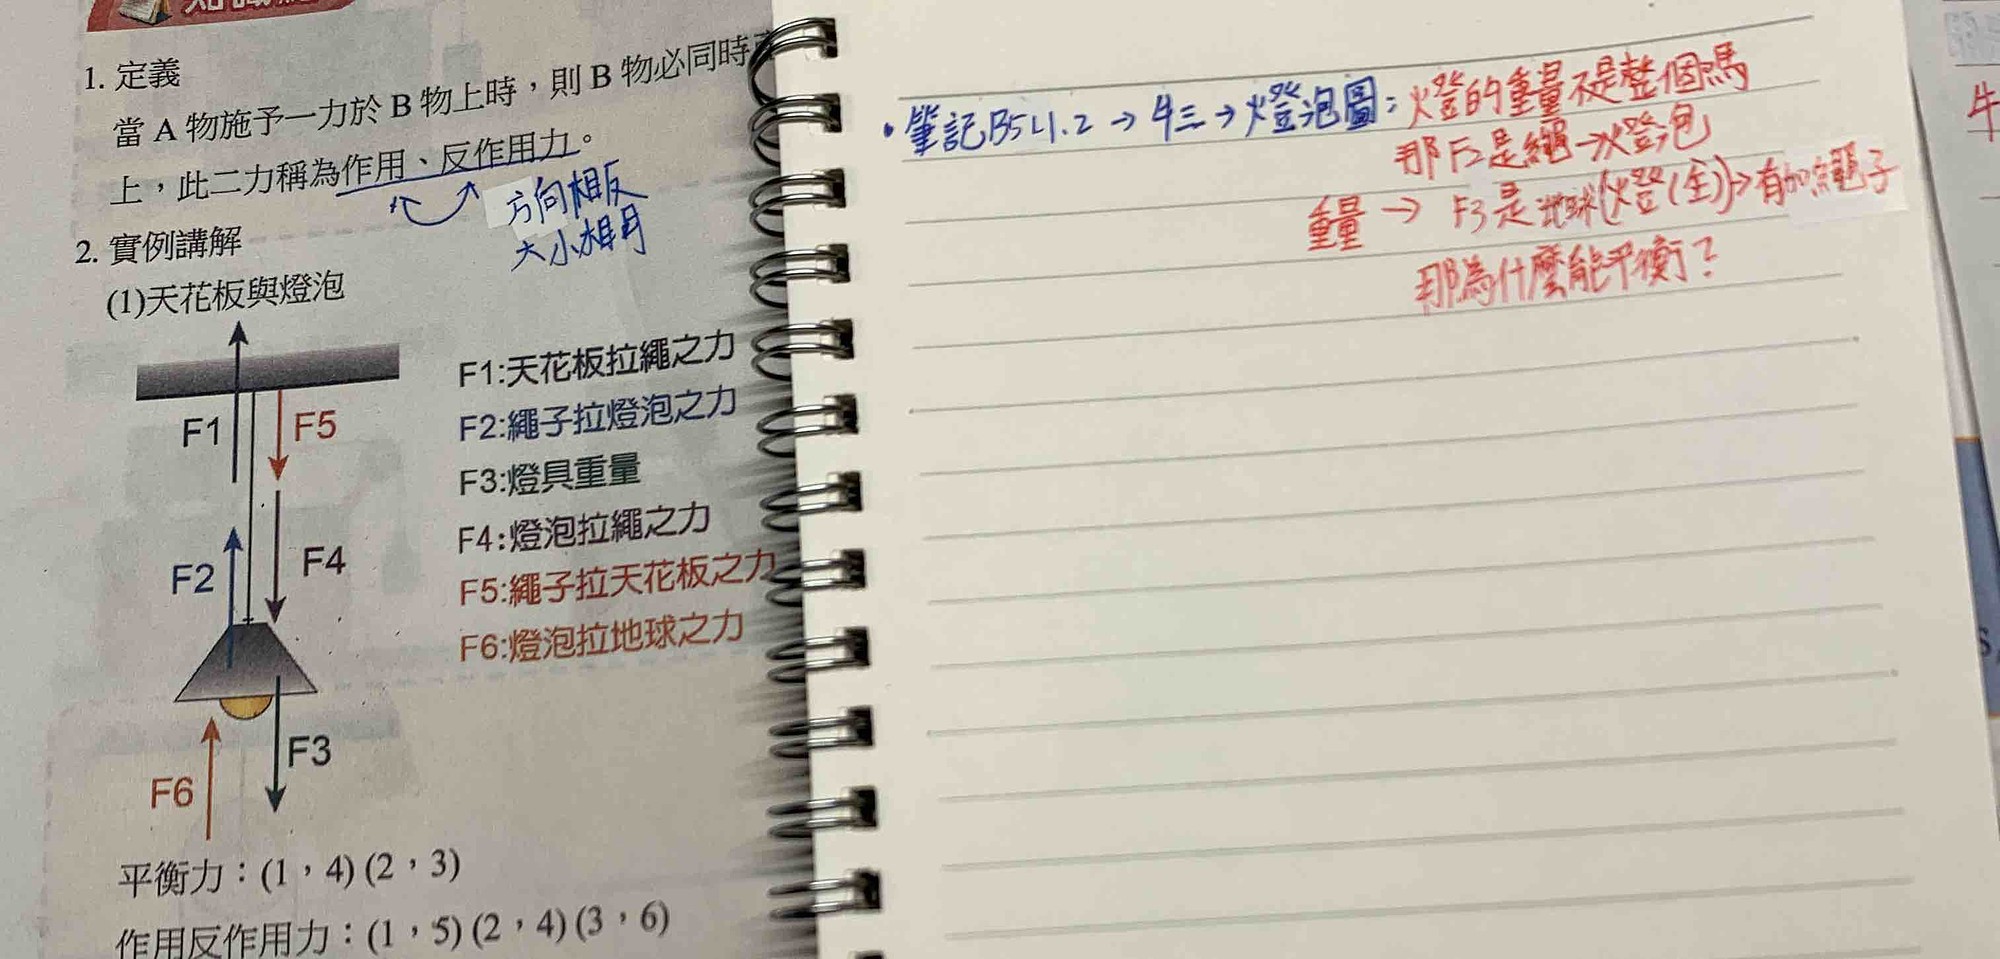 1. 定義
當 A 物施予一力於 B 物上時，則 B 物必同時
上，此二力稱為作用、反作用力。
方向相反
大小相同
2. 實例講解
(1)天花板與燈泡
F1
F5
F2
F4
F3
F6
F1:天花板拉繩之力
F2:繩子拉燈泡之力
F3:燈具重量
F4:燈泡拉繩之力
F5:繩子拉天花板之力
F6:燈泡拉地球之力
平衡力：(1，4) (2，3)
作用反作用力：(1，5) (2，4) (3，6)
•筆記B5L1.2→牛三→燈泡圖：燈的重量不是整個嗎
那F2是繩→燈泡
重量→ F3是地球(燈(全))→有加繩子
那為什麼能平衡？
牛